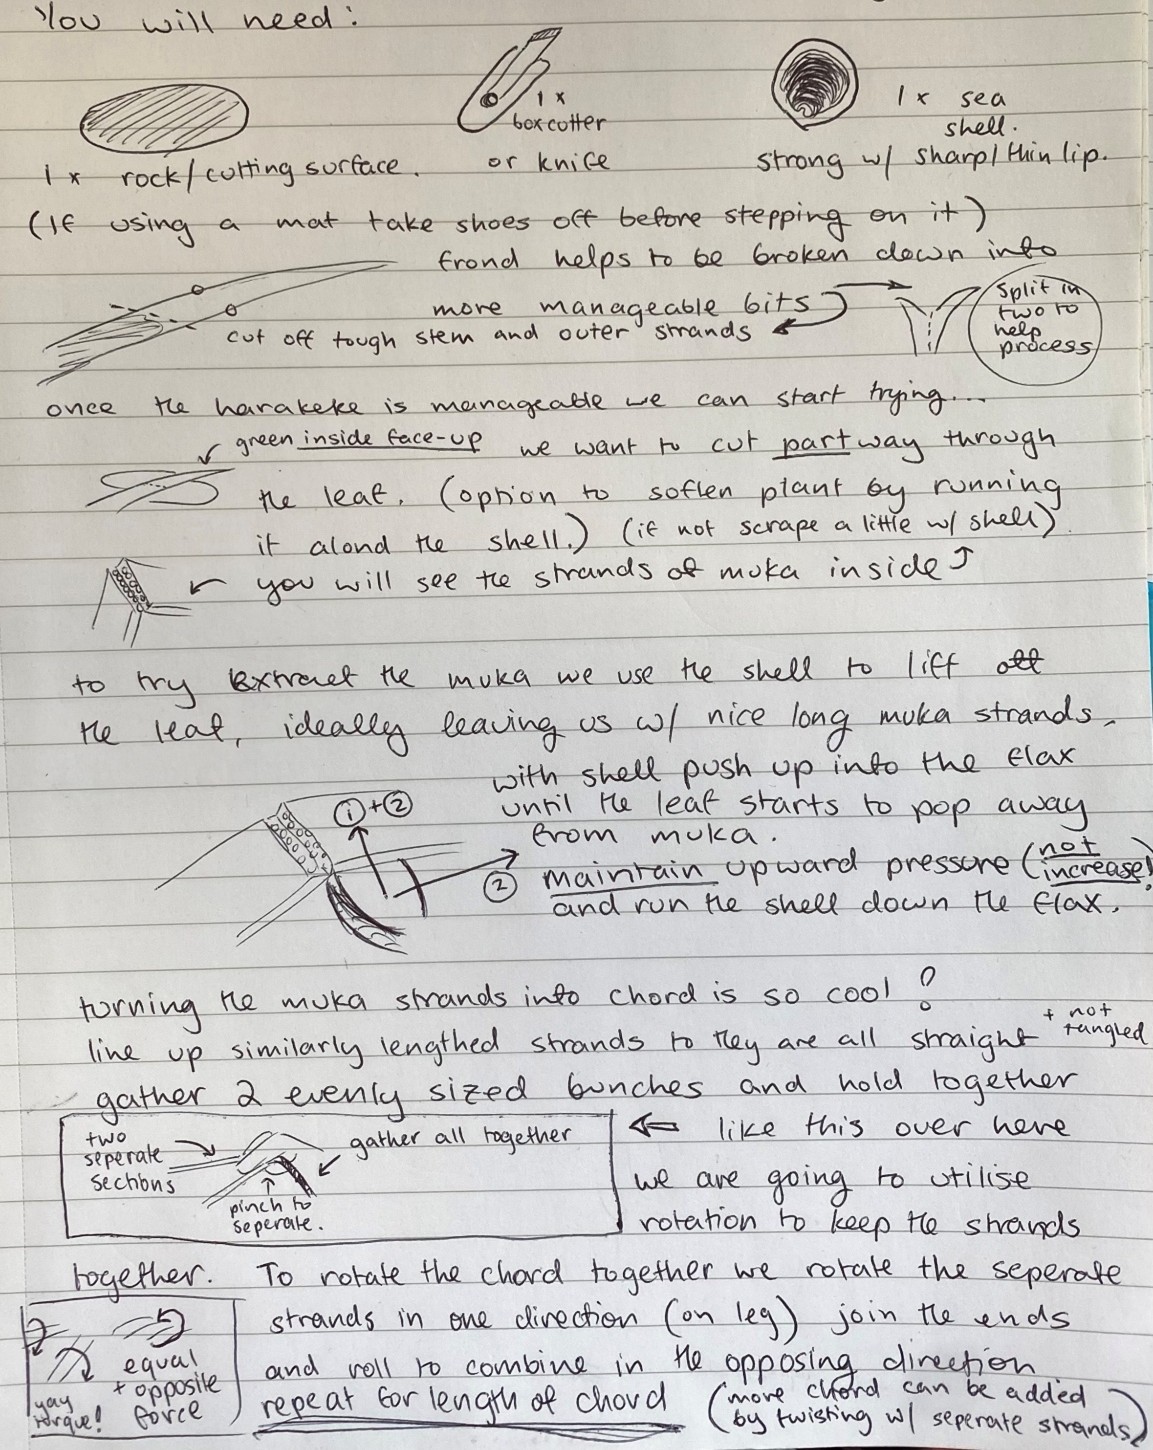 You will need:
1 x boxcutter
or knife
1 x sea
shell.
strong w/ sharp/thin lip.
1 x rock/cutting surface.
(If using a mat take shoes off before stepping on it)
frond helps to be broken down into
more manageable bits
cut off tough stem and outer strands
split in
two to
help
process
once the harakeke is manageable we can start trying...
green inside face-up
we want to cut partway through
the leaf. (option to soften plant by running
it alond the shell.) (if not scrape a little w/ shell)
you will see the strands of muka inside
to try extract the muka we use the shell to liff off
the leaf, ideally leaving us w/ nice long muka strands.
with shell push up into the flax
until the leaf starts to pop away
from muka.
① + ②
② maintain upward pressure (not increase!)
and run the shell down the flax.
turning the muka strands into chord is so cool!
line up similarly lengthed strands to they are all straight + not tangled
gather 2 evenly sized bunches and hold together
two
seperate
sections
gather all together
pinch to
seperate.
like this over here
we are going to utilise
rotation to keep the strands
together. To rotate the chord together we rotate the seperate
strands in one direction (on leg) join the ends
and roll to combine in the opposing direction
repeat for length of chord (more chord can be added
by twisting w/ seperate strands)
equal
+ opposite
force
yay
torque!